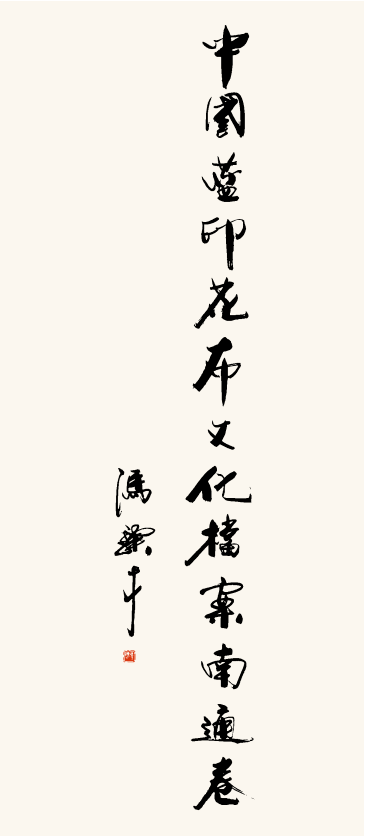 中國藍印花布文化檔案南通卷
馮驥才